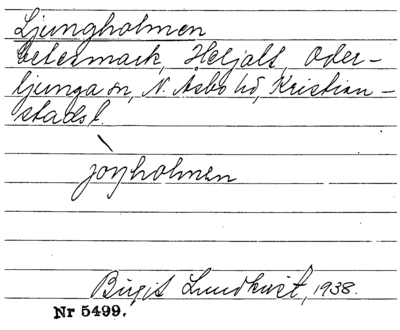 Ljungholmen
betesmark, Heljalt, Oder-
ljunga sn, N. Åsbo hd, Kristian-
stads l.
jɔŋholmen
Birgit Lundkvist, 1938.
Nr 5499.